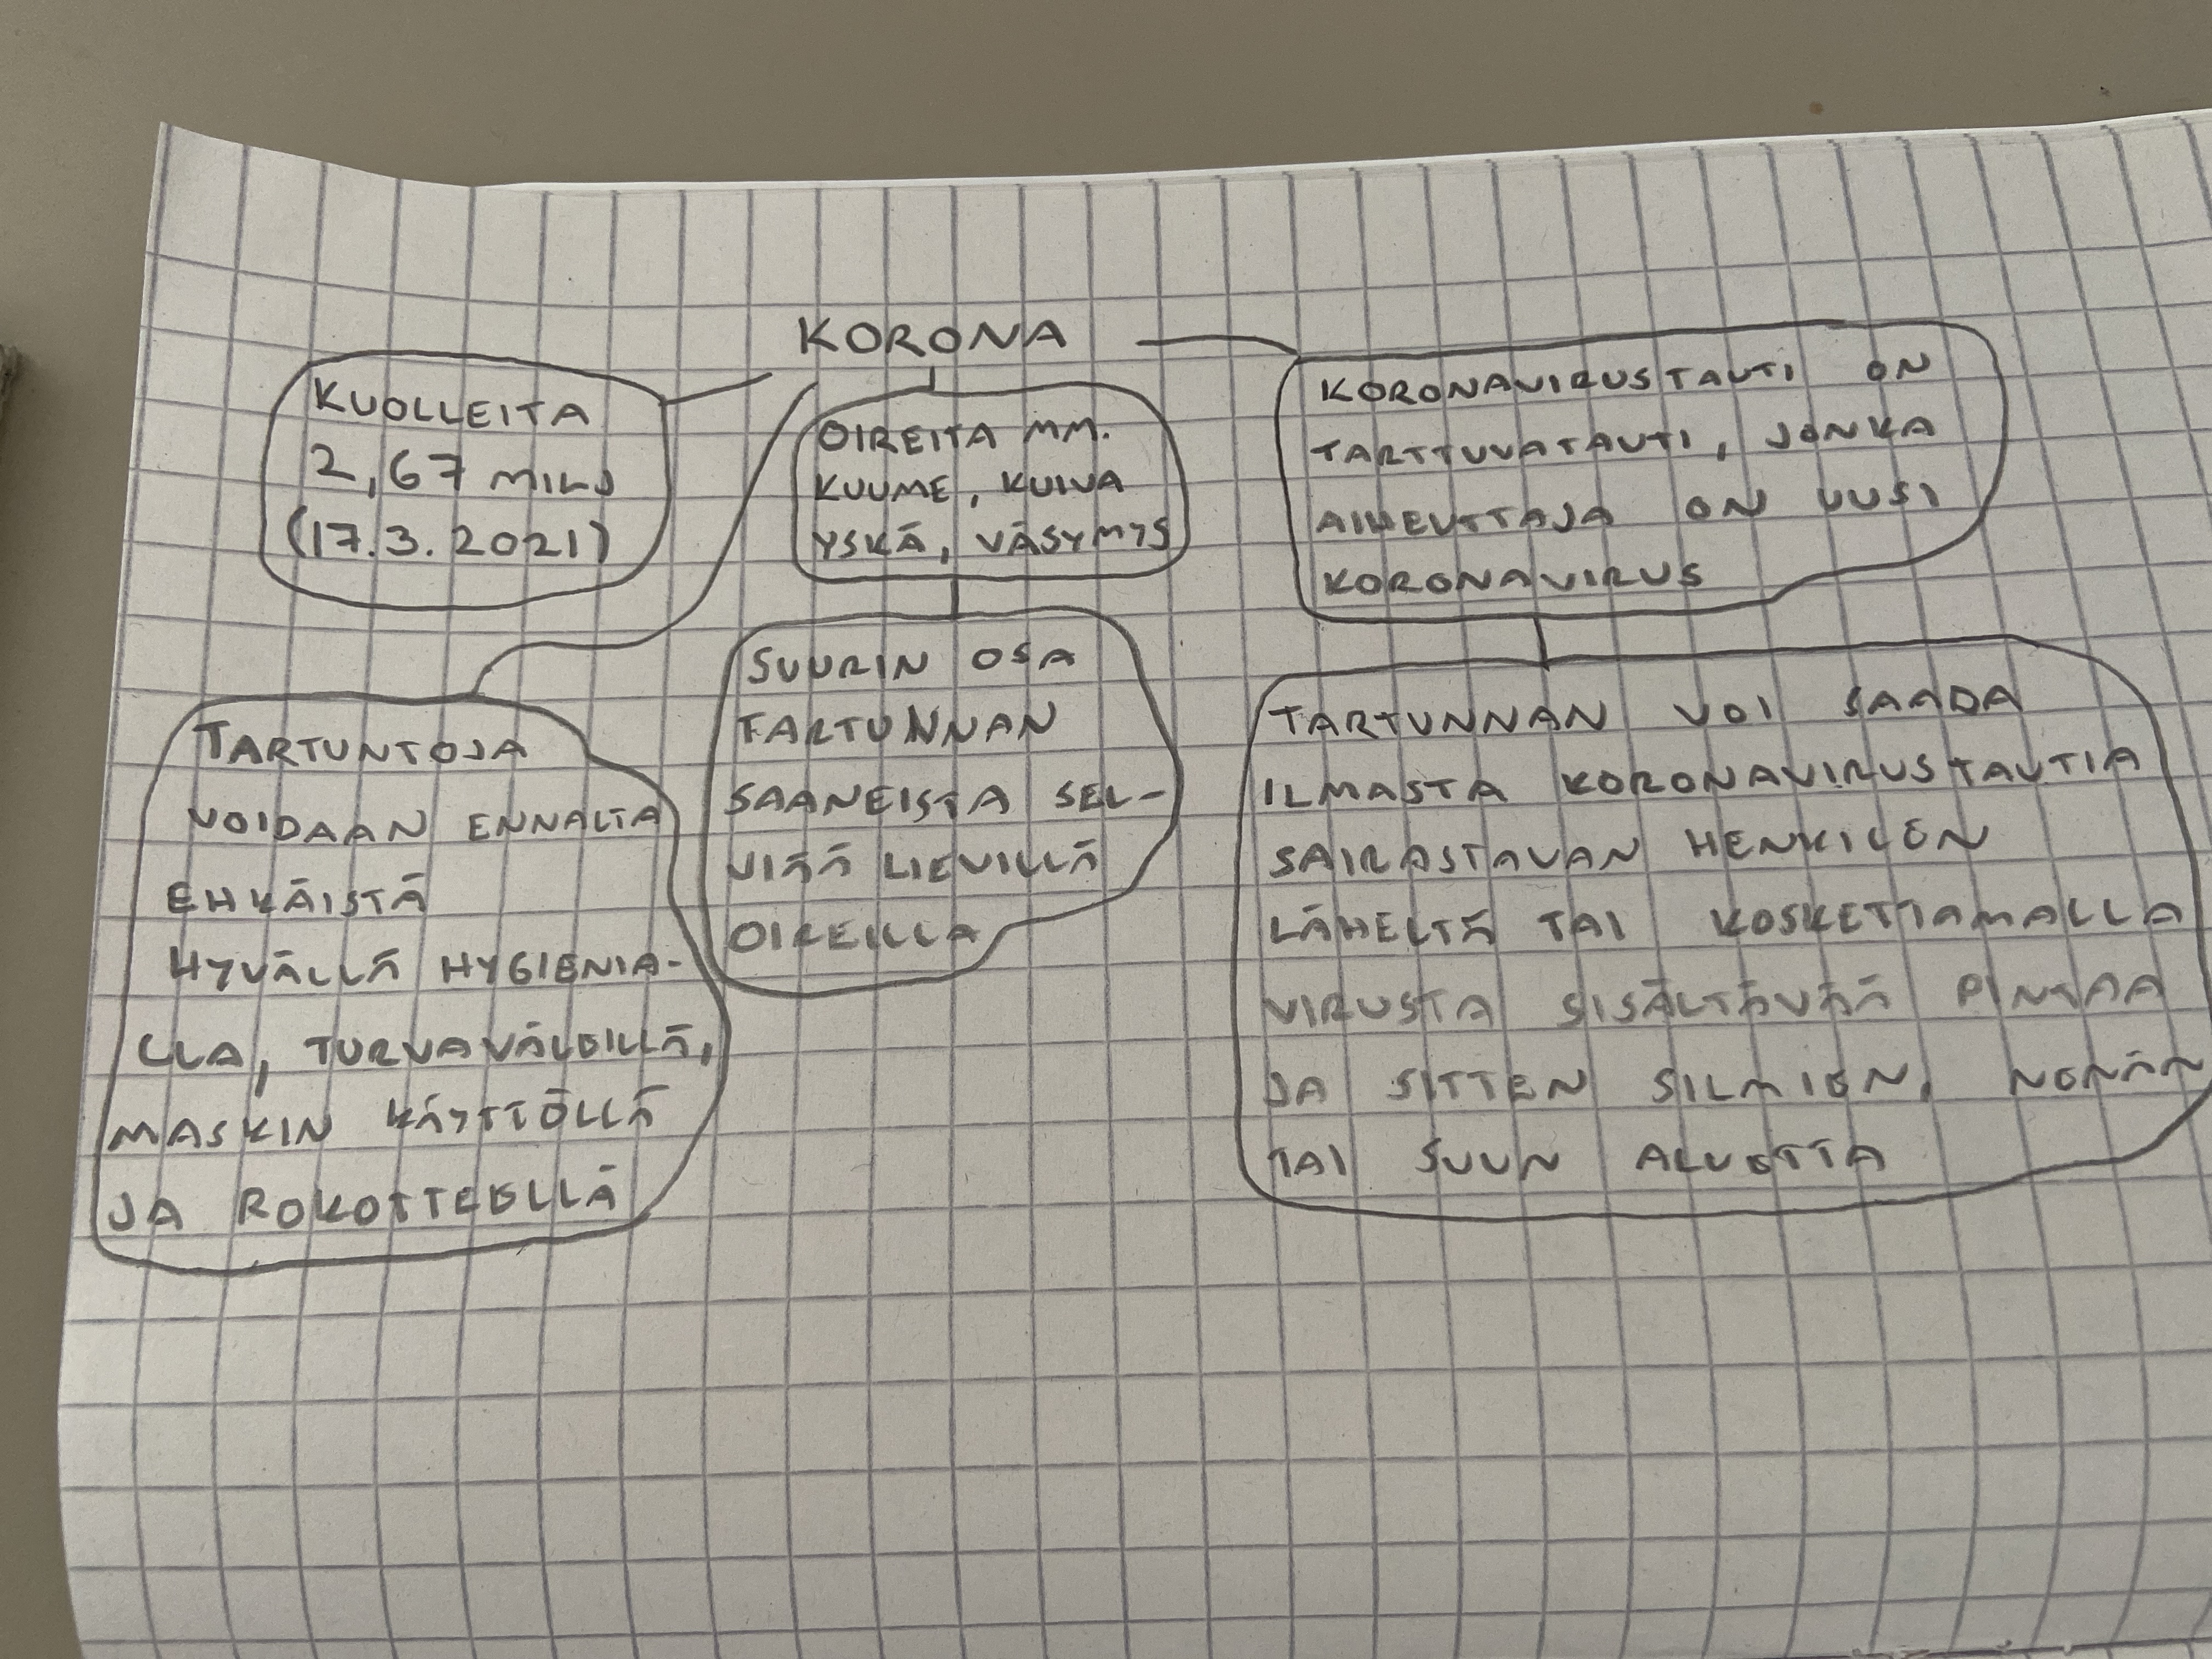 KORONA
KUOLLEITA
2,67 MILJ
(17.3.2021)
OIREITA MM.
KUUME, KUIVA
YSKÄ, VÄSYMYS
KORONAVIRUSTAUTI ON
TARTTUVATAUTI, JONKA
AIHEUTTAJA ON UUSI
KORONAVIRUS
TARTUNTOJA
VOIDAAN ENNALTA
EHKÄISTÄ
HYVÄLLÄ HYGIENIA-
LLA, TURVAVÄLEILLÄ,
MASKIN KÄYTTÖLLÄ
JA ROKOTTEELLÄ
SUURIN OSA
TARTUNNAN
SAANEISTA SEL-
VIÄÄ LIEVILLÄ
OIREILLA
TARTUNNAN VOI SAADA
ILMASTA KORONAVIRUSTAUTIA
SAIRASTAVAN HENKILÖN
LÄHELTÄ TAI KOSKETTAMALLA
VIRUSTA SISÄLTÄVÄÄ PINTAA
JA SITTEN SILMIEN, NENÄN
TAI SUUN ALUETTA